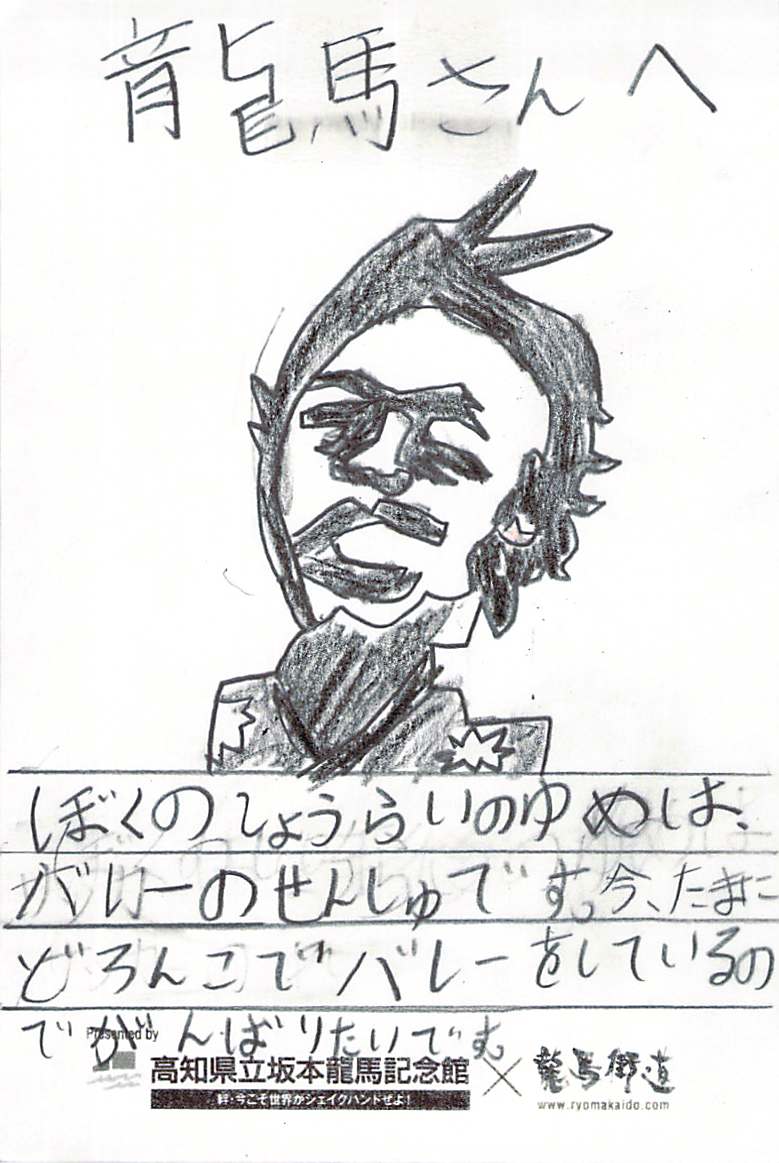 龍馬さんへ
ぼくのしょうらいのゆめは、
バレーのせんしゅです。今、たまに
どろんこでバレーをしているの
でがんばりたいです。
Presented by
高知県立坂本龍馬記念館×龍馬街道
絆・今こそ世界がシェイクハンドぜよ!
www.ryomakaido.com